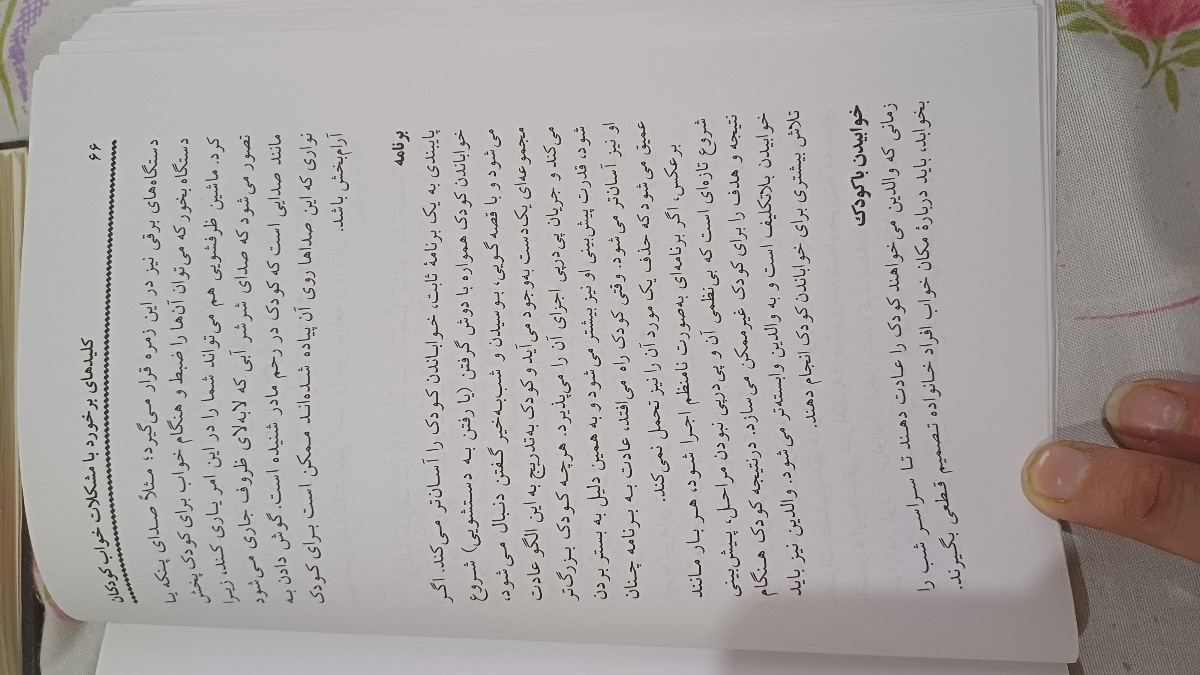 ۶۶
کلیدهای برخورد با مشکلات خواب کودکان
دستگاه‌های برقی نیز در این زمره قرار می‌گیرد؛ مثلاً صدای پنکه یا
دستگاه بخور که می‌توان آن‌ها را ضبط و هنگام خواب برای کودک پخش
کرد. ماشین ظرفشویی هم می‌تواند شما را در این امر یاری کند، زیرا
تصور می‌شود که صدای شرشر آبی که لابه‌لای ظروف جاری می‌شود
مانند صدایی است که کودک در رحم مادر شنیده است. گوش دادن به
نواری که این صداها روی آن پیاده شده‌اند ممکن است برای کودک
آرام‌بخش باشد.
برنامه
پایبندی به یک برنامهٔ ثابت، خواباندن کودک را آسان‌تر می‌کند. اگر
خواباندن کودک همواره با دوش گرفتن (یا رفتن به دستشویی) شروع
می‌شود و با قصه‌گویی، بوسیدن و شب‌به‌خیر گفتن دنبال می‌شود،
مجموعه‌ای یک‌دست به‌وجود می‌آید و کودک به‌تدریج به این الگو عادت
می‌کند و جریان پی‌درپی اجزای آن را می‌پذیرد. هرچه کودک بزرگ‌تر
شود، قدرت پیش‌بینی او نیز بیشتر می‌شود و به همین دلیل به بستر بردن
او نیز آسان‌تر می‌شود. وقتی کودک راه می‌افتد، عادت به برنامه چنان
عمیق می‌شود که حذف یک مورد آن را نیز تحمل نمی‌کند.
برعکس، اگر برنامه‌ای به‌صورت نامنظم اجرا شود، هر بار مانند
شروع تازه‌ای است که بی‌نظمی آن و پی‌درپی نبودن مراحل، پیش‌بینی
نتیجه و هدف را برای کودک غیرممکن می‌سازد. درنتیجه کودک هنگام
خوابیدن بلاتکلیف است و به والدین وابسته‌تر می‌شود. والدین نیز باید
تلاش بیشتری برای خواباندن کودک انجام دهند.
خوابیدن با کودک
زمانی که والدین می‌خواهند کودک را عادت دهند تا سراسر شب را
بخوابد، باید دربارهٔ مکان خواب افراد خانواده تصمیم قطعی بگیرند.